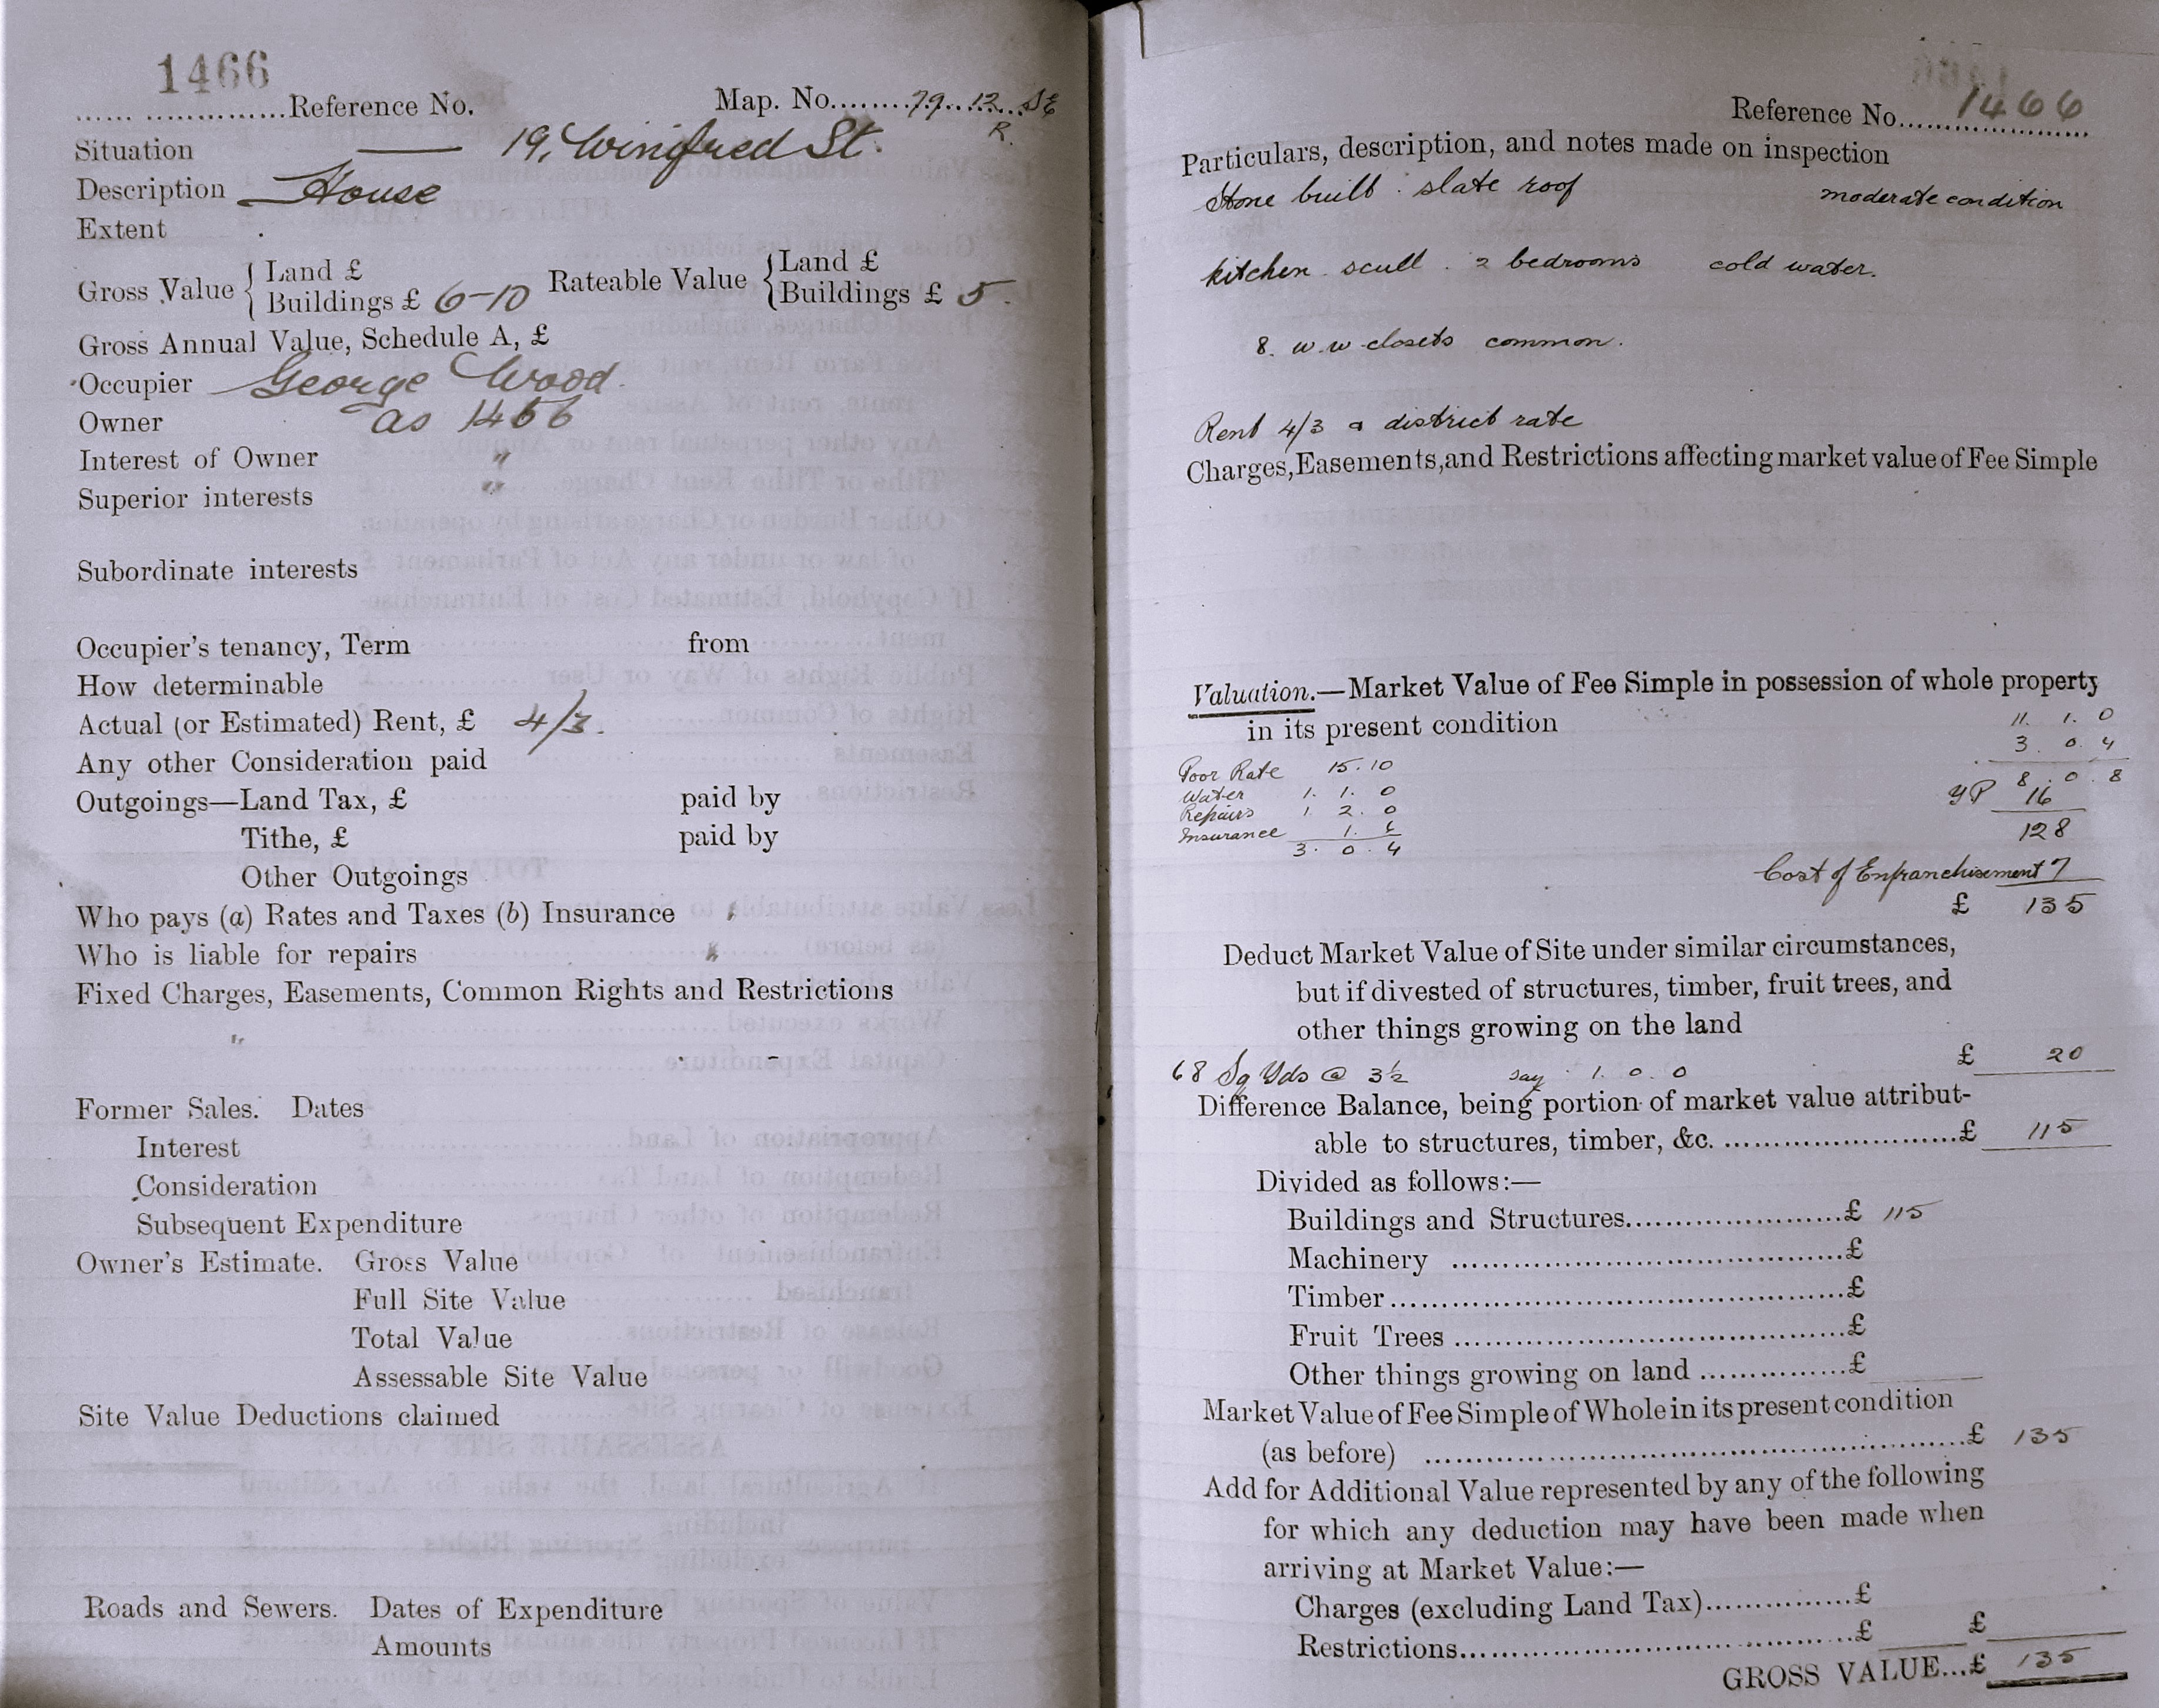 1466
...................Reference No.
Map. No........79..12..SE
R.
Situation — 19, Winifred St.
Description House
Extent
Gross Value { Land £
Buildings £ 6-10
Rateable Value { Land £
Buildings £ 5.
Gross Annual Value, Schedule A, £
Occupier George Wood.
Owner as 1456
Interest of Owner "
Superior interests "
Subordinate interests
Occupier's tenancy, Term from
How determinable
Actual (or Estimated) Rent, £ 4/3.
Any other Consideration paid
Outgoings—Land Tax, £ paid by
Tithe, £ paid by
Other Outgoings
Who pays (a) Rates and Taxes (b) Insurance "
Who is liable for repairs "
Fixed Charges, Easements, Common Rights and Restrictions
"
Former Sales. Dates
Interest
Consideration
Subsequent Expenditure
Owner's Estimate. Gross Value
Full Site Value
Total Value
Assessable Site Value
Site Value Deductions claimed
Roads and Sewers. Dates of Expenditure
Amounts
Reference No. 1466
Particulars, description, and notes made on inspection
Stone built. slate roof moderate condition
kitchen. scull. 2 bedrooms cold water.
8. w.w closets common.
Rent 4/3 & district rate
Charges, Easements, and Restrictions affecting market value of Fee Simple
Valuation.—Market Value of Fee Simple in possession of whole property
in its present condition
11. 1. 0
3. 0. 4
8. 0. 8
YP 16
128
Poor Rate 15.10
Water 1. 1. 0
Repairs 1. 2. 0
Insurance 1. 6
3. 0. 4
Cost of Enfranchisement 7
£ 135
Deduct Market Value of Site under similar circumstances,
but if divested of structures, timber, fruit trees, and
other things growing on the land
£ 20
68 Sq Yds @ 3½ say 1. 0. 0
Difference Balance, being portion of market value attribut-
able to structures, timber, &c. ...........................£ 115
Divided as follows:—
Buildings and Structures.........................£ 115
Machinery .............................................£
Timber.....................................................£
Fruit Trees ..............................................£
Other things growing on land .................£
Market Value of Fee Simple of Whole in its present condition
(as before) ................................................................£ 135
Add for Additional Value represented by any of the following
for which any deduction may have been made when
arriving at Market Value:—
Charges (excluding Land Tax)................£
Restrictions..............................................£ £
GROSS VALUE...£ 135